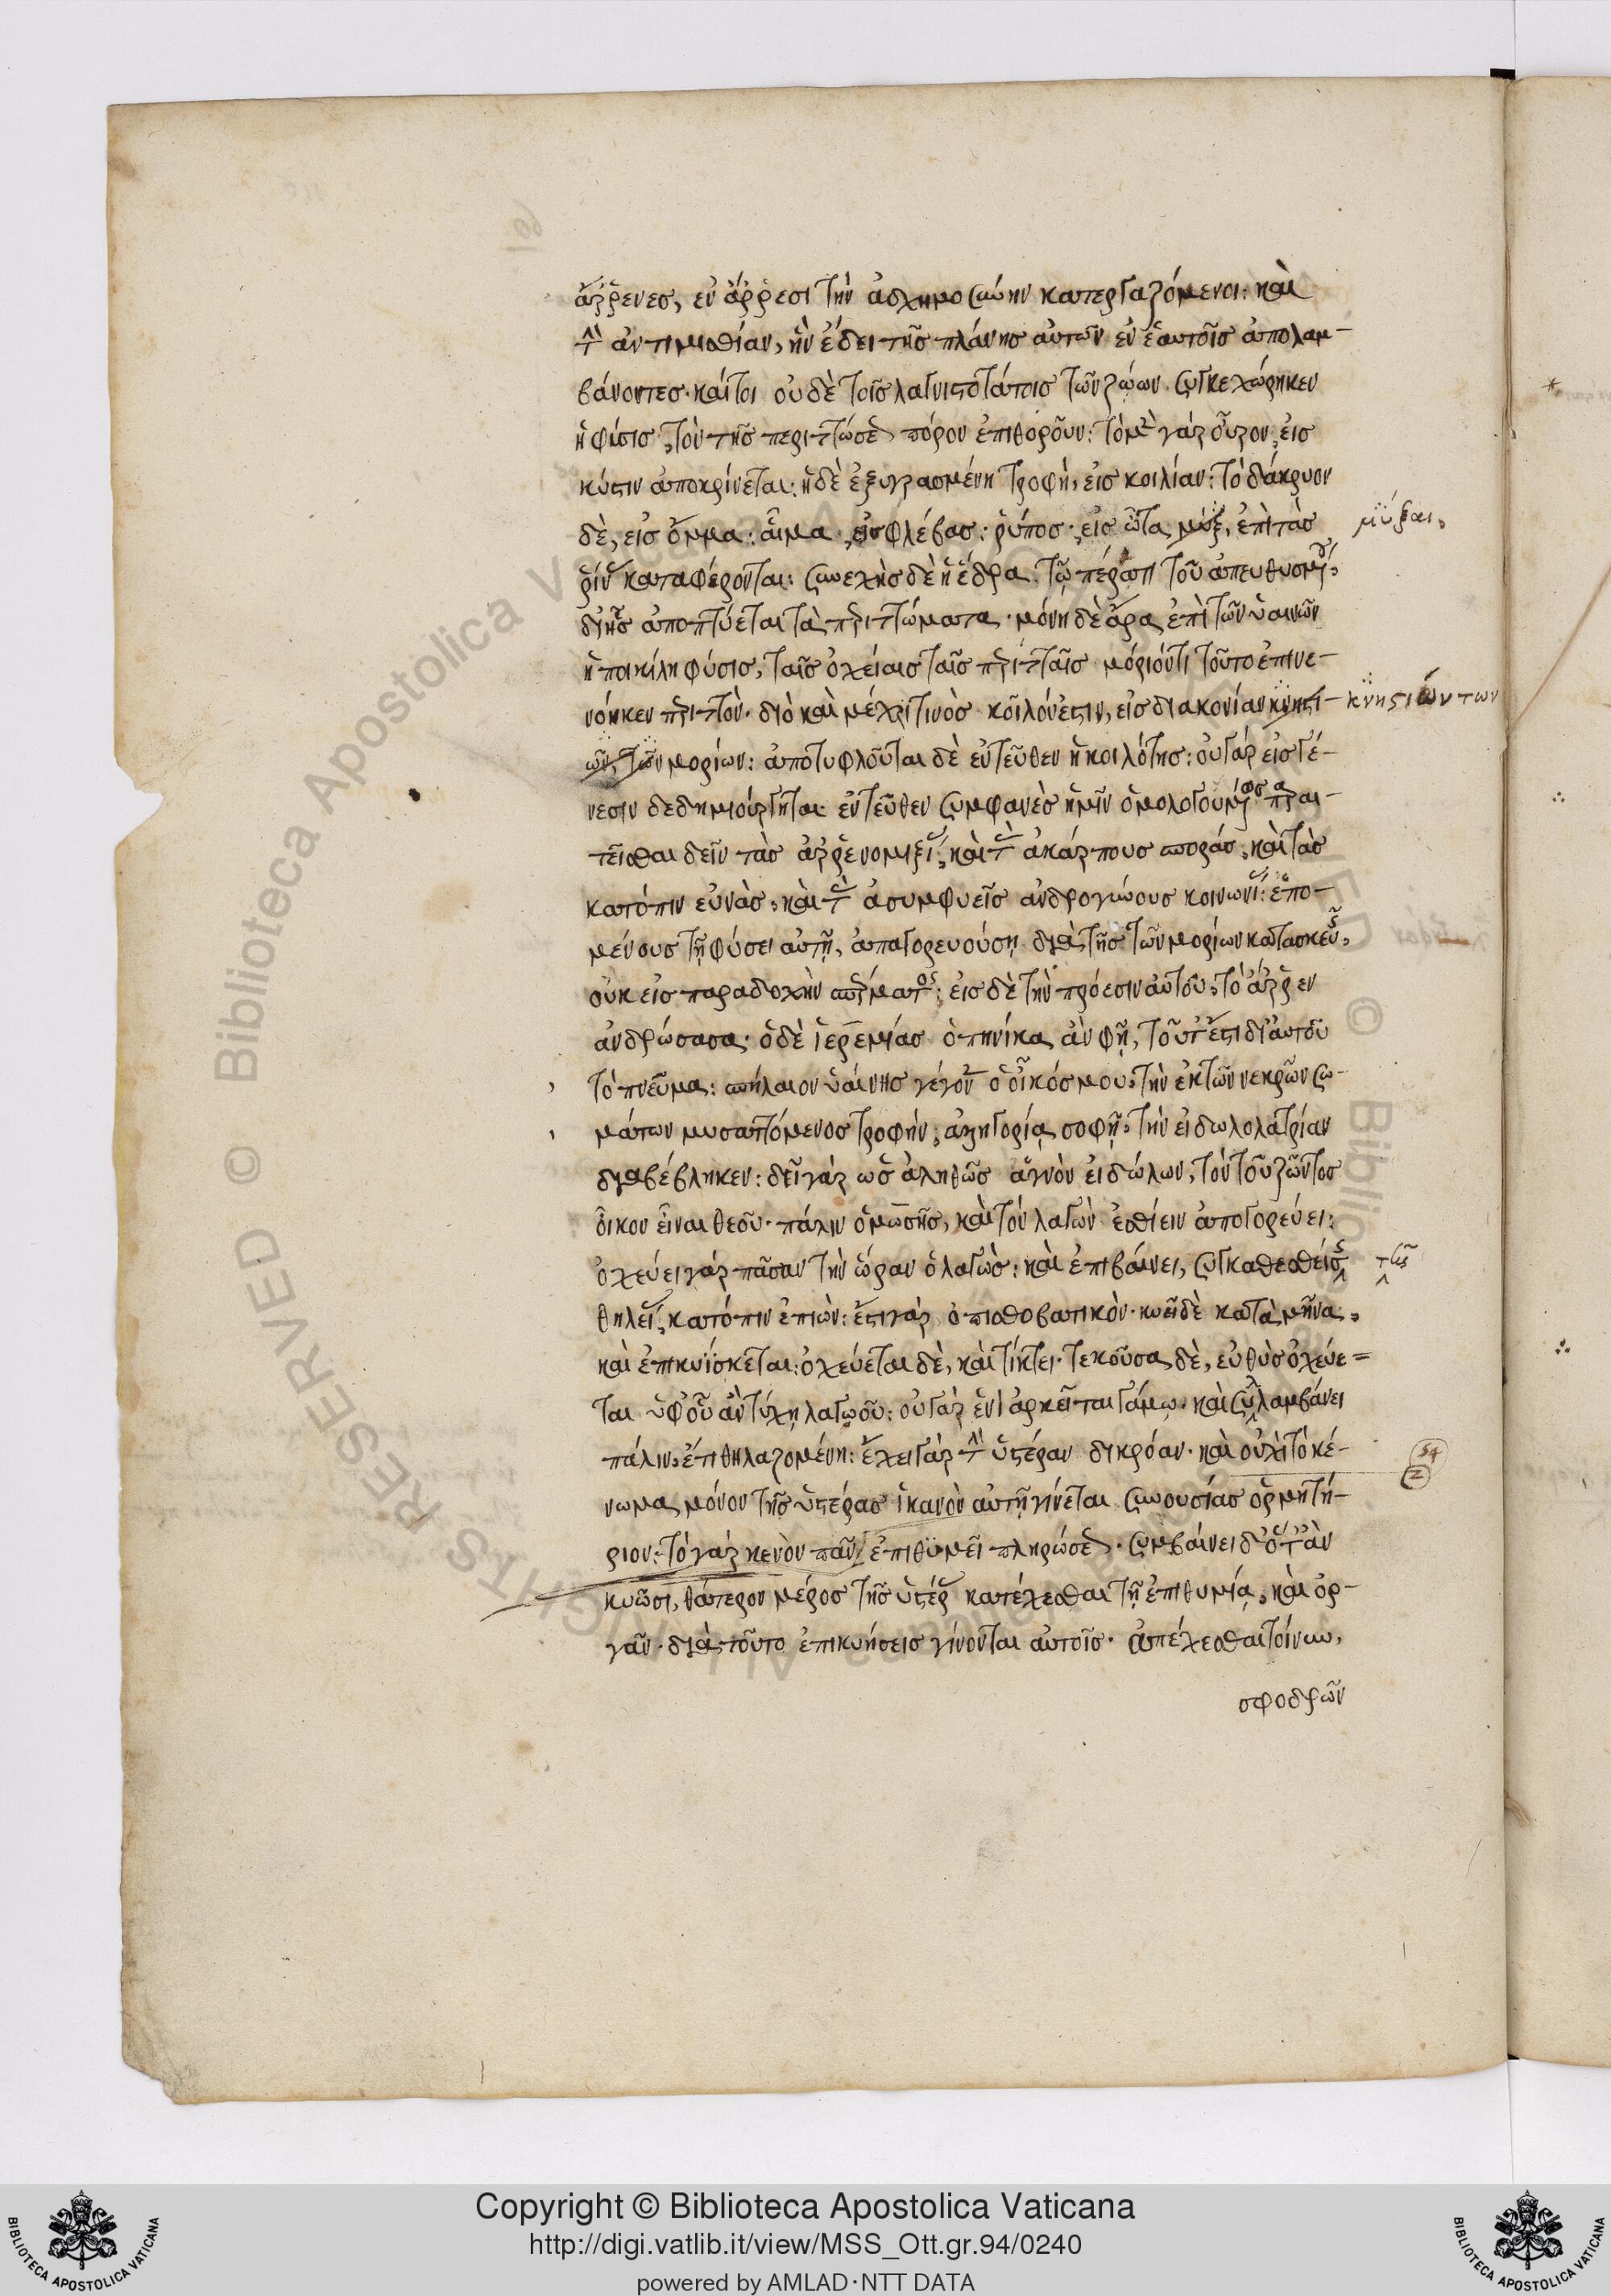 ἄρρενες, ἐν ἄρρεσι τὴν ἀσχημοσύνην κατεργαζόμενοι: καὶ
τὴν ἀντιμισθίαν, ἣν ἔδει τῆς πλάνης αὐτῶν ἐν ἑαυτοῖς ἀπολαμ-
βάνοντες. καίτοι οὐδὲ τοῖς λαγνιστοτάτοις τῶν ζώων συγκεχώρηκεν
ἡ φύσις, τὸν τῆς περιττώσεως πόρον ἐπιθοροῦν: τὸ μὲν γὰρ οὖρον, εἰς
κύστιν ἀποκρίνεται: ἡ δὲ ἐξυγρασμένη τροφὴ, εἰς κοιλίαν: τὸ δάκρυον
δὲ, εἰς ὄμμα: αἷμα, εἰς φλέβας: ῥύπος, εἰς ὦτα, μύξ, ἐπὶ τὰς μύξαι,
ῥῖνας καταφέρονται: συνεχὴς δὲ ἡ ἕδρα, τῷ πέρατι τοῦ ἀπευθυσμένου,
δι' ἧς ἀποπτύεται τὰ περιττώματα. μόνη δὲ ἄρα ἐπὶ τῶν ὑαινῶν
ἡ ποικίλη φύσις, ταῖς ὀχείαις ταῖς περιτταῖς μόριόν τι τοῦτο ἐπινε-
νόηκεν περιττόν. διὸ καὶ μέχρι τινὸς κοῖλόν ἐστιν, εἰς διακονίαν κνηστι- κνησιώντων
ων, τῶν μορίων: ἀποτυφλοῦται δὲ ἐντεῦθεν ἡ κοιλότης: οὐ γὰρ εἰς γέ-
νεσιν δεδημιούργηται. ἐντεῦθεν συμφανὲς ἡμῖν ὁμολογουμένως παραι-
τεῖσθαι δεῖν τὰς ἀρρενομιξίας, καὶ τὰς ἀκάρπους σποράς, καὶ τὰς
κατόπιν εὐνὰς, καὶ τὰς ἀσυμφυεῖς ἀνδρογύνους κοινωνίας: ἑπο-
μένους τῇ φύσει αὐτῇ, ἀπαγορευούσῃ διὰ τῆς τῶν μορίων κατασκευῆς,
οὐκ εἰς παραδοχὴν σπέρματος: εἰς δὲ τὴν πρόεσιν αὐτοῦ, τὸ ἄρρεν
ἀνδρώσασα. ὁ δὲ ἱερεμίας ὁπηνίκα ἂν φῇ, τοῦτ' ἔστι δι' αὐτοῦ
τὸ πνεῦμα: σπήλαιον ὑαίνης γέγονεν ὁ οἶκός μου, τὴν ἐκ τῶν νεκρῶν σω-
μάτων μυσαττόμενος τροφήν, ἀλληγορίᾳ σοφῇ, τὴν εἰδωλολατρίαν
διαβέβληκεν: δεῖ γὰρ ὡς ἀληθῶς ἁγνὸν εἰδώλων, τὸν τοῦ ζῶντος
οἶκον εἶναι θεοῦ. πάλιν ὁ μωσῆς, καὶ τὸν λαγὼν ἐσθίειν ἀπαγορεύει:
ὀχεύει γὰρ πᾶσαν τὴν ὥραν ὁ λαγὼς: καὶ ἐπιβαίνει, συγκαθεσθείσης τῆς
θηλείας, κατόπιν ἐπιών: ἔστι γὰρ ὀπισθοβατικόν. κυεῖ δὲ κατὰ μῆνα,
καὶ ἐπικυΐσκεται: ὀχεύεται δὲ, καὶ τίκτει. τεκοῦσα δὲ, εὐθὺς ὀχεύε=
ται ὑφ' οὗ ἂν τύχῃ λαγωοῦ: οὐ γὰρ ἑνὶ ἀρκεῖται γάμῳ. καὶ συλλαμβάνει
πάλιν, ἔτι θηλαζομένη: ἔχει γὰρ τὴν ὑστέραν δικρόαν. καὶ οὐχὶ τὸ κέ- 54 2
νωμα μόνον τῆς ὑστέρας ἱκανὸν αὐτῇ γίνεται συνουσίας ὁρμητή-
ριον: τὸ γὰρ κενὸν πᾶν ἐπιθυμεῖ πληρώσεως. συμβαίνει δ' ὅταν
κυῶσι, θάτερον μέρος τῆς ὑστέρας κατέχεσθαι τῇ ἐπιθυμίᾳ, καὶ ὀρ-
γᾶν. διὰ τοῦτο ἐπικυήσεις γίνονται αὐτοῖς. ἀπέχεσθαι τοίνυν,
σφοδρῶν
Copyright © Biblioteca Apostolica Vaticana
http://digi.vatlib.it/view/MSS_Ott.gr.94/0240
powered by AMLAD·NTT DATA